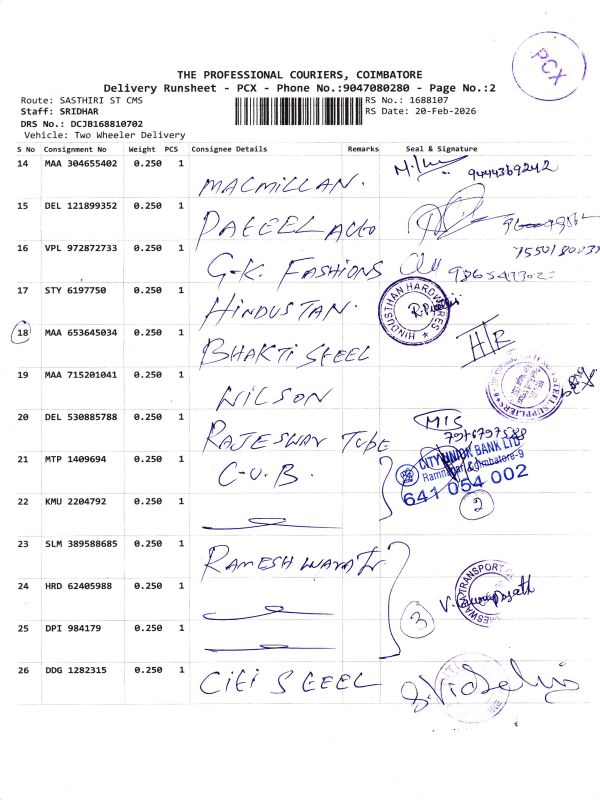 PCX
THE PROFESSIONAL COURIERS, COIMBATORE
Delivery Runsheet - PCX - Phone No.:9047080280 - Page No.:2
Route: SASTHIRI ST CMS RS No.: 1688107
Staff: SRIDHAR RS Date: 20-Feb-2026
DRS No.: DCJB168810702
Vehicle: Two Wheeler Delivery
S No Consignment No Weight PCS Consignee Details Remarks Seal & Signature
14 MAA 304655402 0.250 1 MACMILLAN. 9444369242
15 DEL 121899352 0.250 1 PATEEL AUTO
16 VPL 972872733 0.250 1 G-K. FASHIONS
17 STY 6197750 0.250 1 HINDUSTAN. HINDUSTHAN HARDWARES
18 MAA 653645034 0.250 1 BHAKTI STEEL
19 MAA 715201041 0.250 1 WILSON STEEL SUPPLIERS
20 DEL 530885788 0.250 1 RAJESWAR TUBE
21 MTP 1409694 0.250 1 C-U.B. CITY UNION BANK LTD
Ramnagar, Coimbatore-9
641 054 002
22 KMU 2204792 0.250 1 2
23 SLM 389588685 0.250 1
24 HRD 62405988 0.250 1 3 TRANSPORT
25 DPI 984179 0.250 1
26 DDG 1282315 0.250 1 CITI STEEL